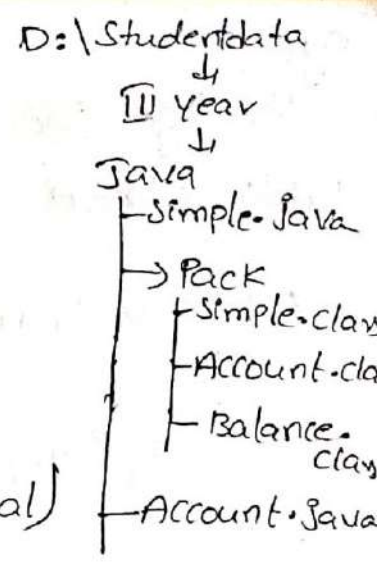 D:\Studentdata
III year
Java
Simple.java
Pack
Simple.clas
Account.cla
Balance.
clas
al)
Account.java